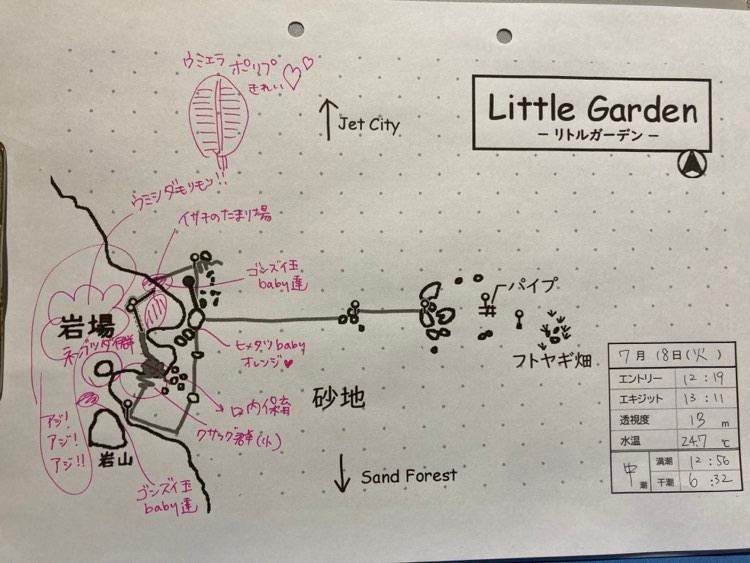 ウミエラ
ポリプ
きれい♡♡
↑ Jet City
Little Garden
− リトルガーデン −
ウミシダモリモリ!!
イサキのたまり場
ゴンズイ玉
baby達
パイプ
岩場
ヒメタツbaby
オレンジ♥
フトヤギ畑
砂地
口内保育
クサフグ群(小)
アジ!
アジ!
アジ!!
岩山
↓ Sand Forest
ゴンズイ玉
baby達
7月 18日(火)
エントリー 12:19
エキジット 13:11
透視度 13 m
水温 24.7 ℃
中潮 満潮 12:56
干潮 6:32